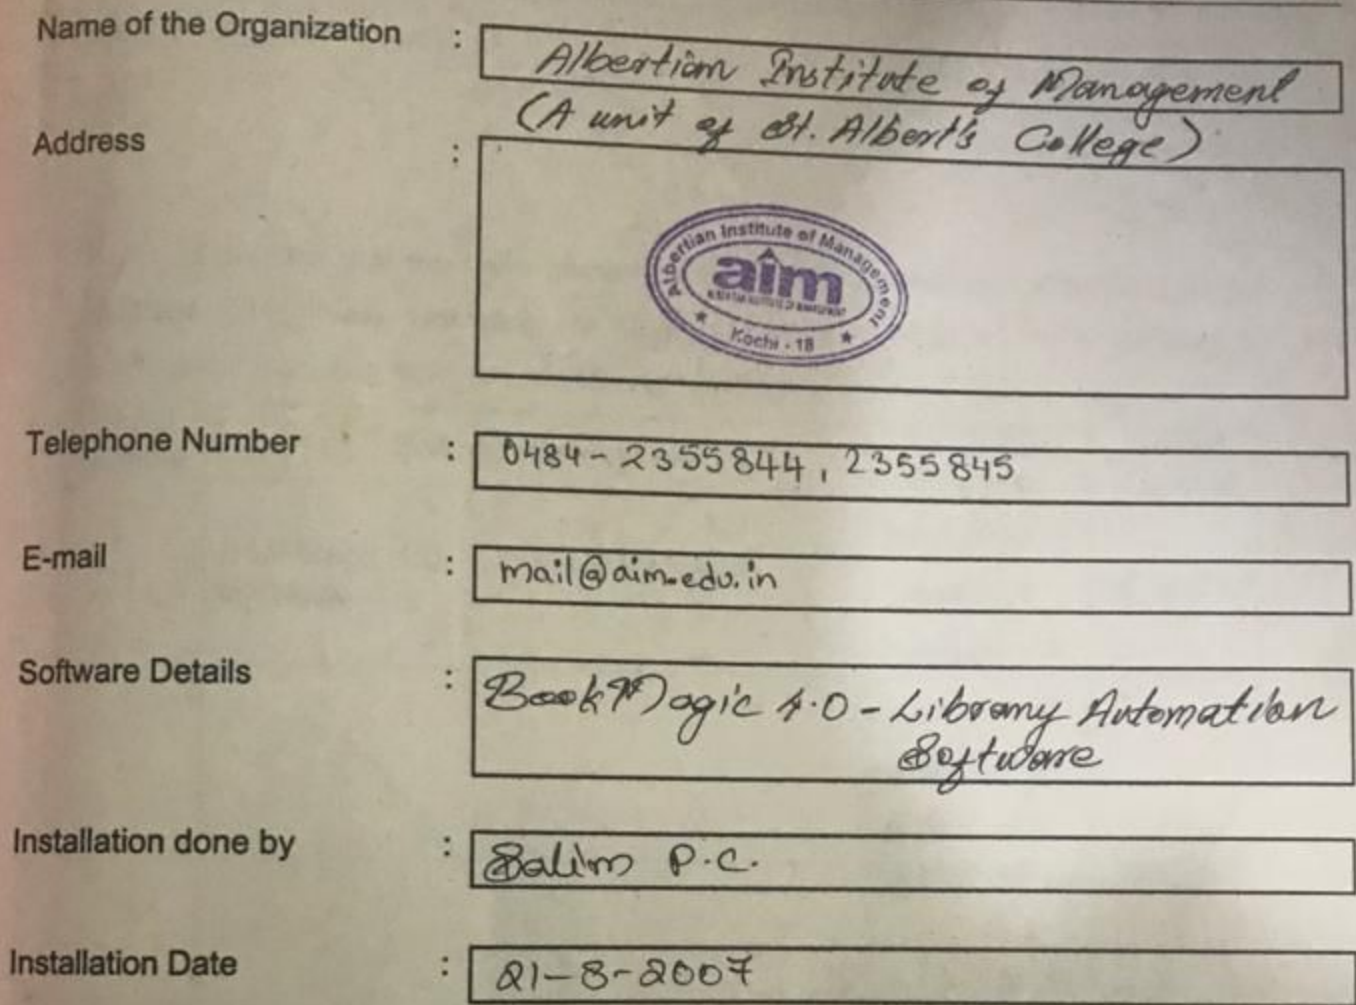 Name of the Organization : Albertian Institute of Management
(A unit of St. Albert's College)
Address :
Albertian Institute of Management
aim
ALBERTIAN INSTITUTE OF MANAGEMENT
Kochi - 18
Telephone Number : 0484-2355844, 2355845
E-mail : mail@aim.edu.in
Software Details : BookMagic 4.0 - Library Automation
Software
Installation done by : Salim P.C.
Installation Date : 21-8-2007